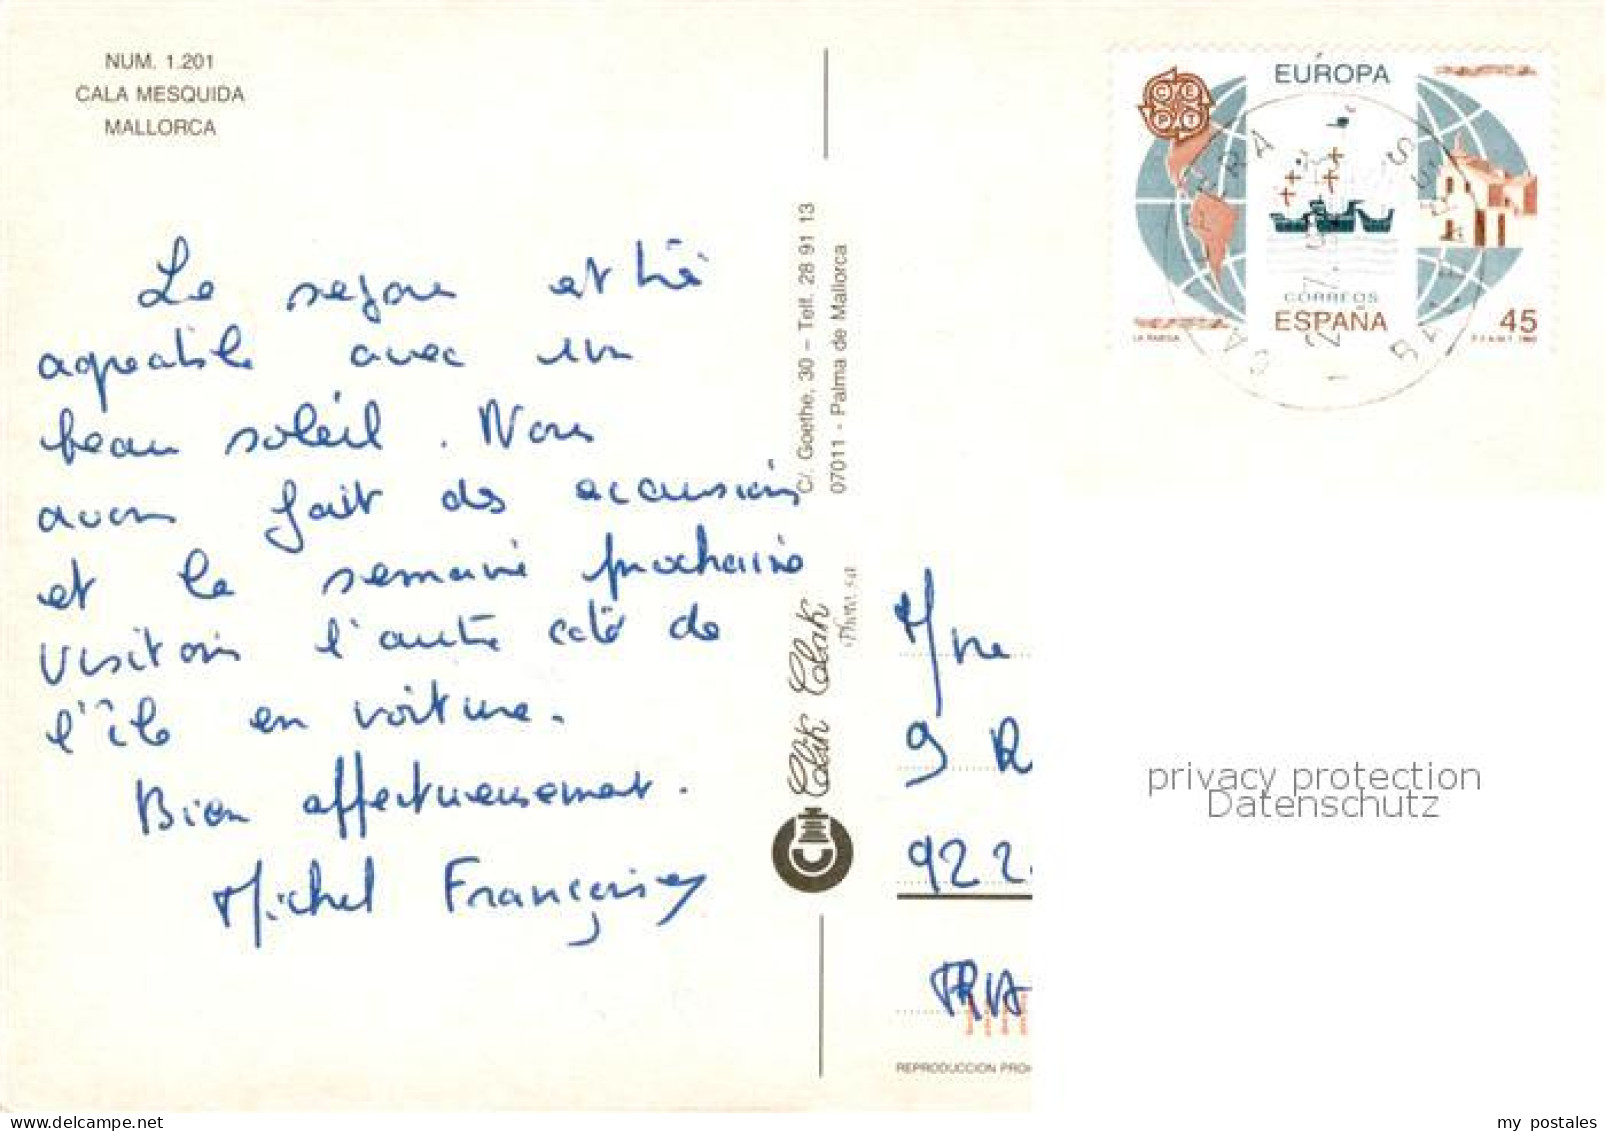 NUM. 1.201
CALA MESQUIDA
MALLORCA
Le sejour et trés
agreable avec un
beau soleil. Nous
avons fait des excursions
et la semaine prochaine
visitons l'autre coté de
l'île en voiture.
Bien affectueusement.
Michel Françoise
C/. Goethe, 30 - Telf. 28 91 13
07011 - Palma de Mallorca
Clik Clak
CEPT
EUROPA
CORREOS
ESPAÑA
LA RABIDA
45
F.N.M.T. 1992
CALA RATJADA
BALEARES
Mme
9 R
922
FRA
REPRODUCCION PROH
privacy protection
Datenschutz
my postales